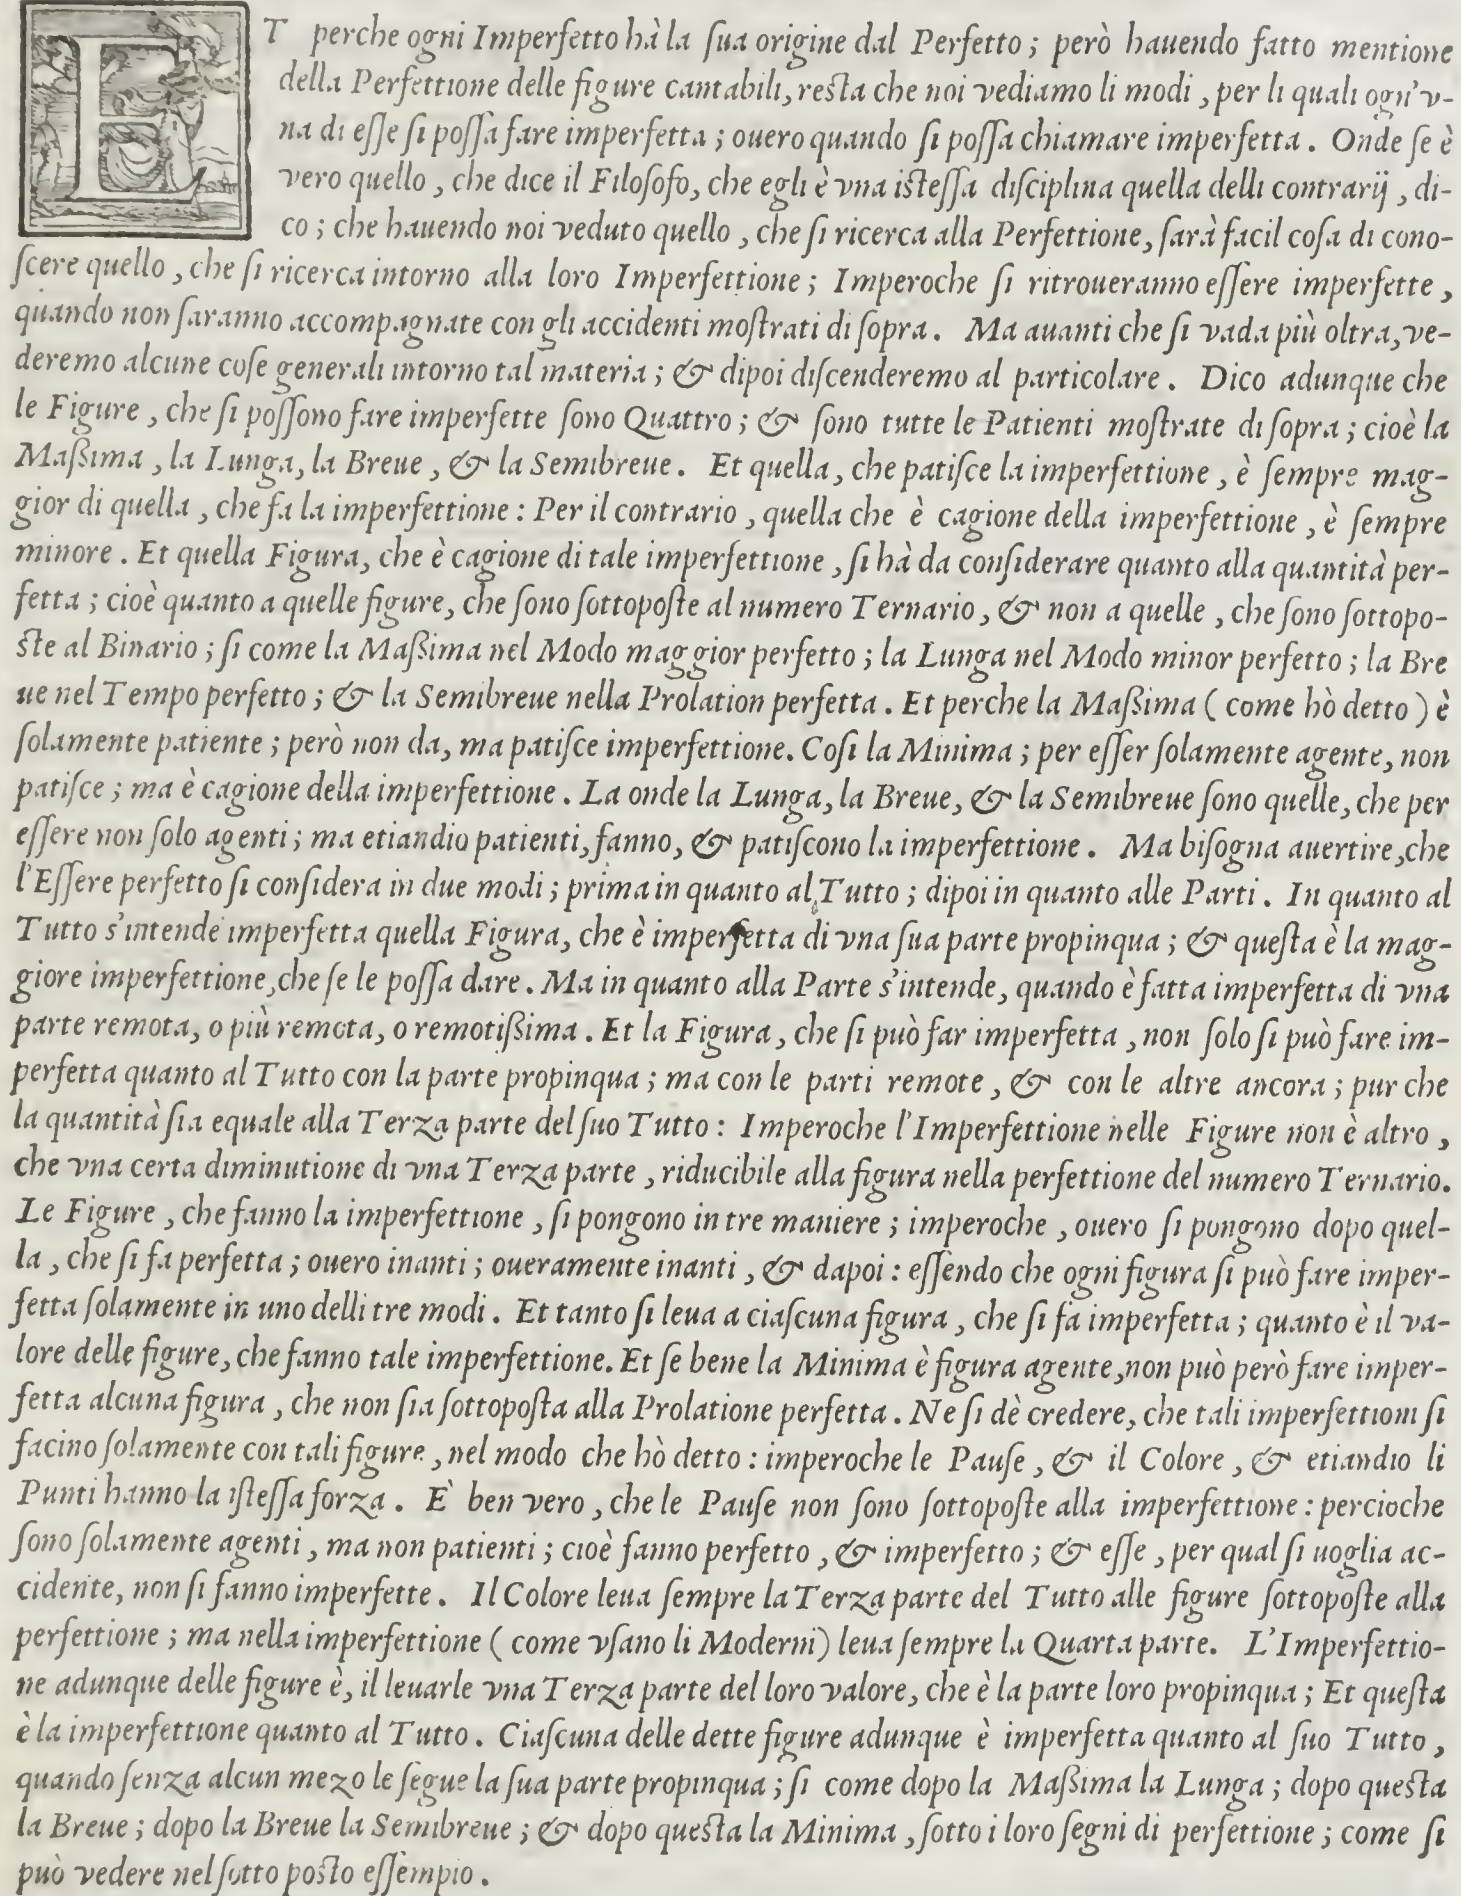 ET perche ogni Imperfetto hà la ſua origine dal Perfetto; però hauendo fatto mentione
della Perfettione delle figure cantabili, reſta che noi vediamo li modi, per li quali ogn'v-
na di eſſe ſi poſſa fare imperfetta; ouero quando ſi poſſa chiamare imperfetta. Onde ſe è
vero quello, che dice il Filoſofo, che egli è vna iſteſſa diſciplina quella delli contrarij, di-
co; che hauendo noi veduto quello, che ſi ricerca alla Perfettione, ſarà facil coſa di cono-
ſcere quello, che ſi ricerca intorno alla loro Imperfettione; Imperoche ſi ritroueranno eſſere imperfette,
quando non ſaranno accompagnate con gli accidenti moſtrati di ſopra. Ma auanti che ſi vada più oltra, ve-
deremo alcune coſe generali intorno tal materia; & dipoi diſcenderemo al particolare. Dico adunque che
le Figure, che ſi poſſono fare imperfette ſono Quattro; & ſono tutte le Patienti moſtrate di ſopra; cioè la
Maßima, la Lunga, la Breue, & la Semibreue. Et quella, che patiſce la imperfettione, è ſempre mag-
gior di quella, che fa la imperfettione: Per il contrario, quella che è cagione della imperfettione, è ſempre
minore. Et quella Figura, che è cagione di tale imperfettione, ſi hà da conſiderare quanto alla quantità per-
fetta; cioè quanto a quelle figure, che ſono ſottopoſte al numero Ternario, & non a quelle, che ſono ſottopo-
ſte al Binario; ſi come la Maßima nel Modo maggior perfetto; la Lunga nel Modo minor perfetto; la Bre
ue nel Tempo perfetto; & la Semibreue nella Prolation perfetta. Et perche la Maßima (come hò detto) è
ſolamente patiente; però non da, ma patiſce imperfettione. Coſi la Minima; per eſſer ſolamente agente, non
patiſce; ma è cagione della imperfettione. La onde la Lunga, la Breue, & la Semibreue ſono quelle, che per
eſſere non ſolo agenti; ma etiandio patienti, fanno, & patiſcono la imperfettione. Ma biſogna auertire, che
l'Eſſere perfetto ſi conſidera in due modi; prima in quanto al Tutto; dipoi in quanto alle Parti. In quanto al
Tutto s'intende imperfetta quella Figura, che è imperfetta di vna ſua parte propinqua; & queſta è la mag-
giore imperfettione, che ſe le poſſa dare. Ma in quanto alla Parte s'intende, quando è fatta imperfetta di vna
parte remota, o più remota, o remotißima. Et la Figura, che ſi può far imperfetta, non ſolo ſi può fare im-
perfetta quanto al Tutto con la parte propinqua; ma con le parti remote, & con le altre ancora; pur che
la quantità ſia equale alla Terza parte del ſuo Tutto: Imperoche l'Imperfettione nelle Figure non è altro,
che vna certa diminutione di vna Terza parte, riducibile alla figura nella perfettione del numero Ternario.
Le Figure, che fanno la imperfettione, ſi pongono in tre maniere; imperoche, ouero ſi pongono dopo quel-
la, che ſi fa perfetta; ouero inanti; oueramente inanti, & dapoi: eſſendo che ogni figura ſi può fare imper-
fetta ſolamente in uno delli tre modi. Et tanto ſi leua a ciaſcuna figura, che ſi fa imperfetta; quanto è il va-
lore delle figure, che fanno tale imperfettione. Et ſe bene la Minima è figura agente, non può però fare imper-
fetta alcuna figura, che non ſia ſottopoſta alla Prolatione perfetta. Ne ſi dè credere, che tali imperfettioni ſi
facino ſolamente con tali figure, nel modo che hò detto: imperoche le Pauſe, & il Colore, & etiandio li
Punti hanno la iſteſſa forza. È ben vero, che le Pauſe non ſono ſottopoſte alla imperfettione: percioche
ſono ſolamente agenti, ma non patienti; cioè fanno perfetto, & imperfetto; & eſſe, per qual ſi uoglia ac-
cidente, non ſi fanno imperfette. Il Colore leua ſempre la Terza parte del Tutto alle figure ſottopoſte alla
perfettione; ma nella imperfettione (come vſano li Moderni) leua ſempre la Quarta parte. L'Imperfettio-
ne adunque delle figure è, il leuarle vna Terza parte del loro valore, che è la parte loro propinqua; Et queſta
è la imperfettione quanto al Tutto. Ciaſcuna delle dette figure adunque è imperfetta quanto al ſuo Tutto,
quando ſenza alcun mezo le ſegue la ſua parte propinqua; ſi come dopo la Maßima la Lunga; dopo queſta
la Breue; dopo la Breue la Semibreue; & dopo queſta la Minima, ſotto i loro ſegni di perfettione; come ſi
può vedere nel ſotto poſto eſſempio.